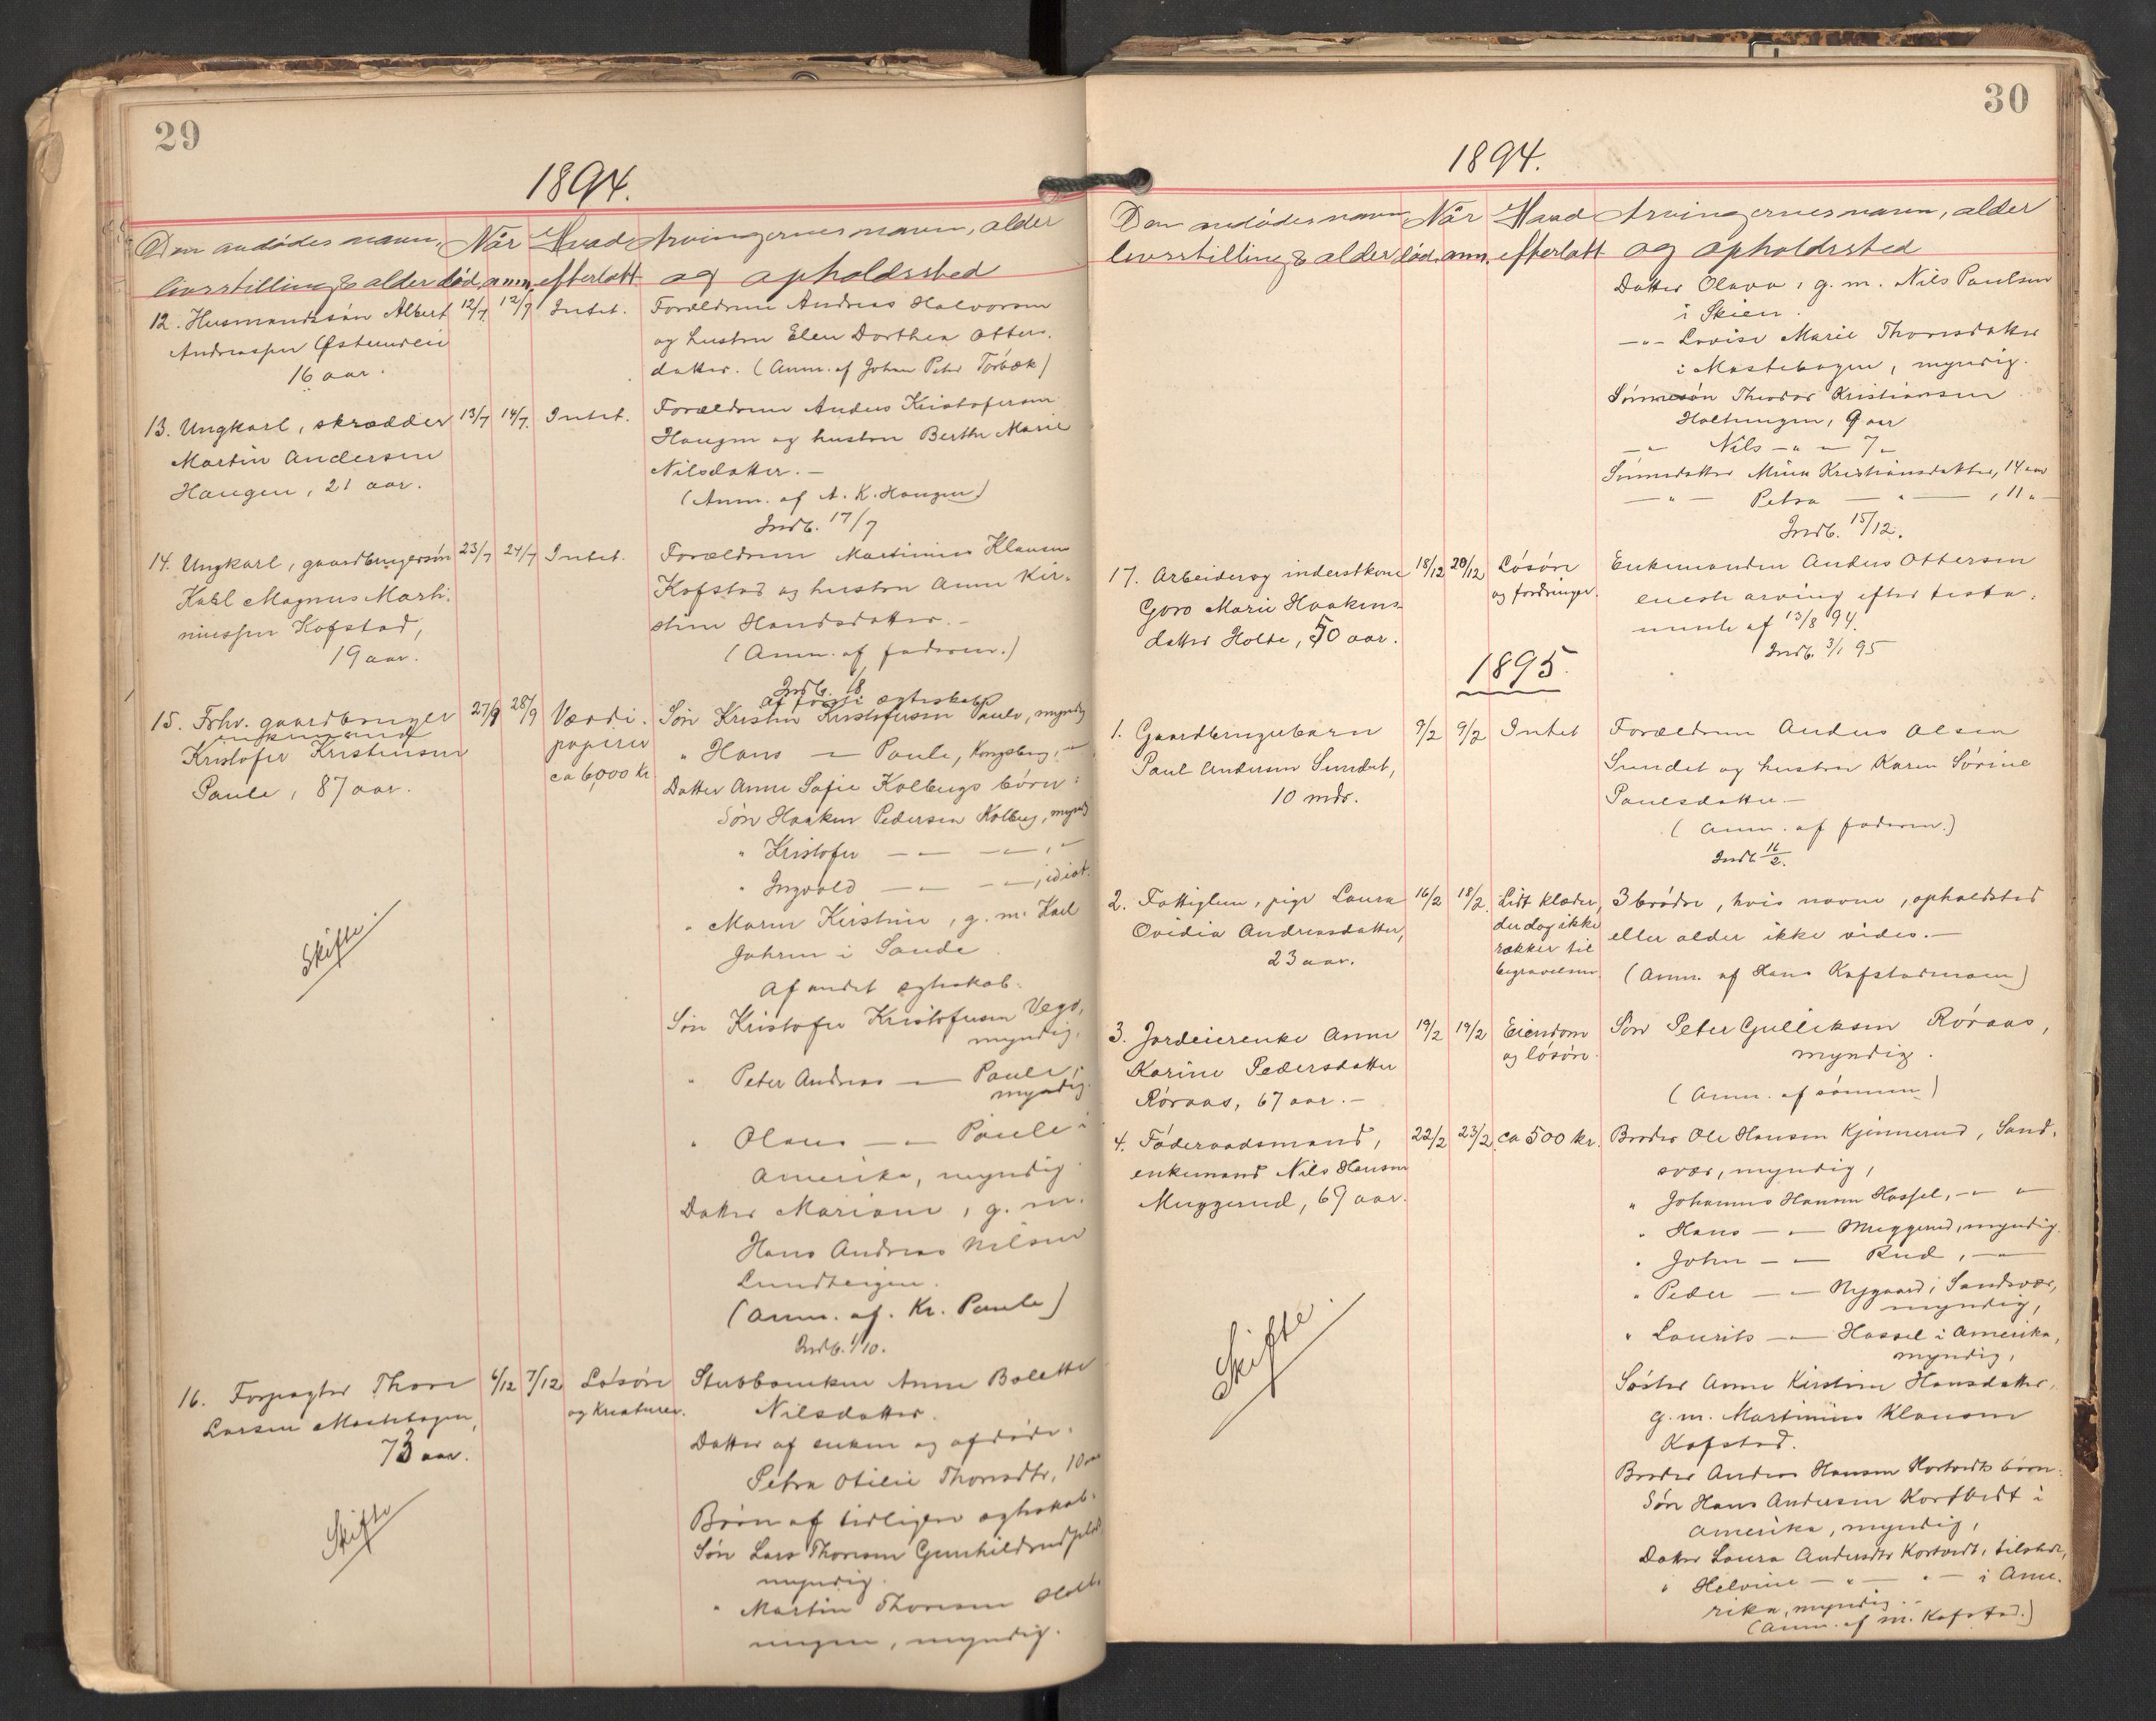 29
1894.
Den avdødes navn, Når Hvad Arvingernes navn, alder
livsstilling & alder død. anm. efterlatt og opholdssted
12. Husmandssøn Albert 12/7 12/7 Intet. Forældrene Andreas Halvorsen
Andreassen og hustru Elen Dorthea Otters-
16 aar. datter. (Anm. af Johan Peter Torbæk)
13. Ungkarl, skrædder 13/7 14/7. Intet. Forældrene Anders Kristofersen
Martin Andersen Haugen og hustru Berthe Marie
Haugen, 21 aar. Nilsdatter. —
(Anm. af A. K. Haugen)
Indb. 17/7
14. Ungkarl, gaardbrugersøn 23/7 24/7 Intet. Forældrene Martinius Klausen
Karl Magnus Marti- Kofstad og hustru Anne Kir-
niussen Kofstad, stine Hansdatter. —
19 aar. (Anm. af faderen.)
Indb. 18
af første egteskab
15. Frhv. gaardbruger 27/9 28/9 Værdi- Søn Kristen Kristofersen Paule, myndig
enkemand
Kristofer Kristensen papirer " Hans — " — Paule, Kongsberg, — " —
Paule, 87 aar. ca 6,000 kr Datter Anne Sofie Kolbergs børn:
Søn Haaken Pedersen Kolberg, myndig
" Kristofer — " — — " — , — " —
" Ingvald — " — — " — , idiot.
" Maren Kirstine, g. m. Karl
Johren i Sande
Skifte
Af andet egteskab:
Søn Kristofer Kristofersen Vego,
myndig,
" Peter Andreas — " — Paule,
myndig
" Olaus — " — Paule i
Amerika, myndig
Datter Mariane, g. m.
Hans Andreas Nilsen
Lundteigen.
(Anm. af. Kr. Paule)
Indb. 1/10.
16. Forpagter Thore 6/12 7/12 Løsøre Stubbenken Anne Bolette
Larsen Mastebogen, og kreaturer. Nilsdatter.
73 aar. Datter af enken og afdøde:
Petra Otilie Thoresdtr, 10 aar
Børn af tidligere egteskab:
Skifte
Søn Lars Thoresen Gunhildrud
myndig.
" Martin Thoresen Holt-
ungen, myndig.
30
1894.
Den avdødes navn Når Hvad Arvingernes navn, alder
livsstilling & alder død. anm. efterlatt og opholdssted
Datter Olava, g. m. Nils Paulsen
i Skien.
— " — Lovise Marie Thoresdatter
i Mastebogen, myndig.
Sønnesøn Theodor Kristiansen
Holtungen, 9 aar
— " — Nils — " — 7 "
Sønnedatter Mina Kristiansdatter, 14 aar
— " — Petra — " — , 11 "
Indb. 15/12.
17. Arbeider og inderstkone 18/12 20/12 Løsøre Enkemanden Anders Ottersen
Goro Marie Haakens- og fordringer. eneste arving efter testa-
datter Holte, 50 aar. mente af 13/8 94.
Indb. 3/1 95
1895.
1. Gaardbrugerbarn 7/2 9/2 Intet Forældrene Anders Olsen
Paul Andersen Sundet, Sundet og hustru Karen Sørine
10 mdr. Paulsdatter —
( Anm. af faderen.)
Indb 16/2.
2. Fattiglem, pige Laura 16/2 18/2. Lidt klæder, 3 brødre, hvis navne, opholdsted
Ovidia Andreasdatter, der dog ikke eller alder ikke vides. —
23 aar. rækker til
begravelsen. (Anm. af Hans Kofstadmoen)
3. Jordeierenke Anne 19/2 19/2 Eiendom Søn Peter Gulliksen Røraas,
Karine Pedersdatter og løsøre. myndig.
Røraas, 67 aar. — ( Anm. af sønnen )
4. Føderaadsmand, 22/2 23/2. ca 500 kr. Broder Ole Hansen Kjennerud, Sand-
enkemand Nils Hansen svær, myndig,
Muggerud, 69 aar. " Johannes Hansen Hassel, — " — "
" Hans — " — Muggerud, myndig.
" John — " — Rud, — " —
" Peder — " — Nygaard i Sandsvær,
myndig,
" Laurits — " — Hassel i Amerika,
myndig,
Skifte
Søster Anne Kirstine Hansdatter,
g. m. Martinius Klausen
Kofstad.
Broder Anders Hansen Kortvedts børn:
Søn Hans Andersen Kortvedt i
Amerika, myndig,
Datter Laura Andersdtr Kortvedt, tilstede,
" Helvine — " — " — i Ame-
rika, myndig. —
(Anm. af M. Kofstad.)